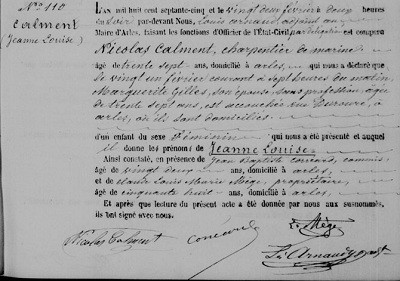 No 110
Calment
(Jeanne Louise)
L'an mil huit cent septante-cinq et le vingt deux février à deux heures
du soir par-devant Nous, Louis Arnaud, adjoint au
Maire d'Arles, faisant les fonctions d'Officier de l'État-Civil par délégation est comparu
Nicolas Calment, charpentier de marine
âgé de trente sept ans, domicilié à Arles, qui nous a déclaré que
le vingt un février courant à sept heures du matin,
Marguerite Gilles, son épouse, sans profession, âgée
de trente sept ans, est accouchée rue du Roure, à
Arles, où ils sont domiciliés
d'un enfant du sexe féminin qui nous a été présenté et auquel
il donne les prénoms de Jeanne Louise
Ainsi constaté, en présence de Jean Baptiste commis
âgé de vingt deux ans, domicilié à Arles,
et de Louis Marie Mège, propriétaire,
âgé de cinquante huit ans, domicilié à Arles.
Et après que lecture du présent acte a été donnée par nous aux susnommés,
ils ont signé avec nous.
Mège
Nicolas Calment
Ls Arnaud adjoint